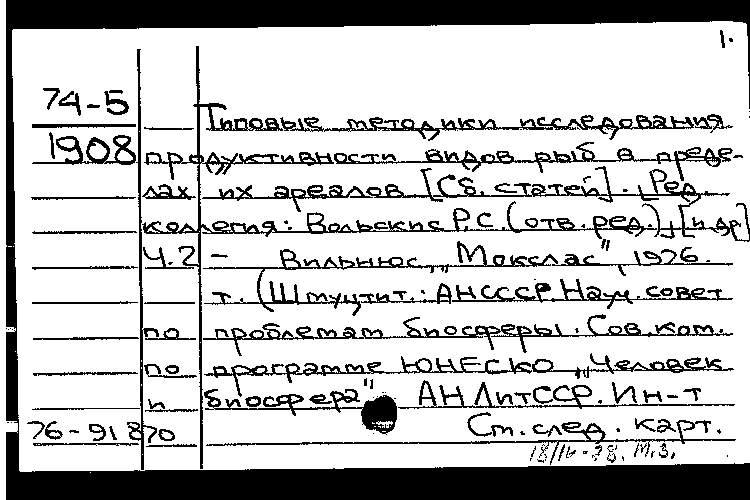 1.
74-5
1908
Типовые методики исследования
продуктивности видов рыб в преде-
лах их ареалов [Сб. статей]. [Ред.
коллегия: Вольскис Р.С. (отв. ред.), [и др]
Ч.2 – Вильнюс, „Мокслас", 1976.
т. (Шмуцтит.: АНСССР. Науч. совет
по проблемам биосферы. Сов. ком.
по программе ЮНЕСКО „Человек
и биосфера" АН ЛитССР. Ин-т
76-91870 См. след. карт.
18/IV-78. М.З.